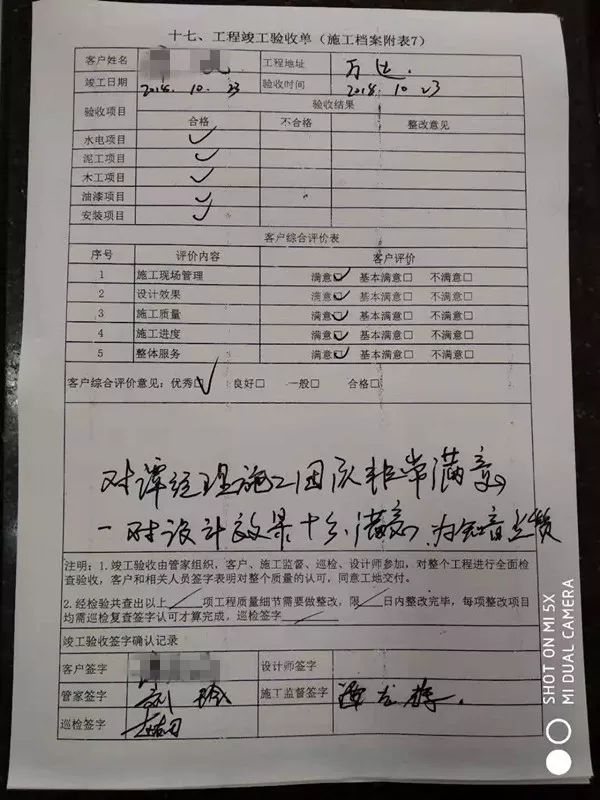 十七、工程竣工验收单（施工档案附表7）
客户姓名 工程地址 万达
竣工日期 2018.10.23 验收时间 2018.10 23
验收项目 验收结果
合格 不合格 整改意见
水电项目 ✓
泥工项目 ✓
木工项目 ✓
油漆项目 ✓
安装项目 ✓
客户综合评价表
序号 评价内容 客户评价
1 施工现场管理 满意☑ 基本满意□ 不满意□
2 设计效果 满意☑ 基本满意□ 不满意□
3 施工质量 满意☑ 基本满意□ 不满意□
4 施工进度 满意☑ 基本满意□ 不满意□
5 整体服务 满意☑ 基本满意□ 不满意□
客户综合评价意见：优秀☑ 良好□ 一般□ 合格□
对谭经理施工团队非常满意
对设计效果十分满意 为知音点赞
注明：1.竣工验收由管家组织，客户、施工监督、巡检、设计师参加，对整个工程进行全面检
查验收，客户和相关人员签字表明对整个质量的认可，同意工地交付。
2.经检验共查出以上 / 项工程质量细节需要做整改，限 / 日内整改完毕，每项整改项目
均需巡检复查签字认可才算完成，巡检签字 /
竣工验收签字确认记录
客户签字 设计师签字
管家签字 施工监督签字
巡检签字
SHOT ON MI 5X
MI DUAL CAMERA